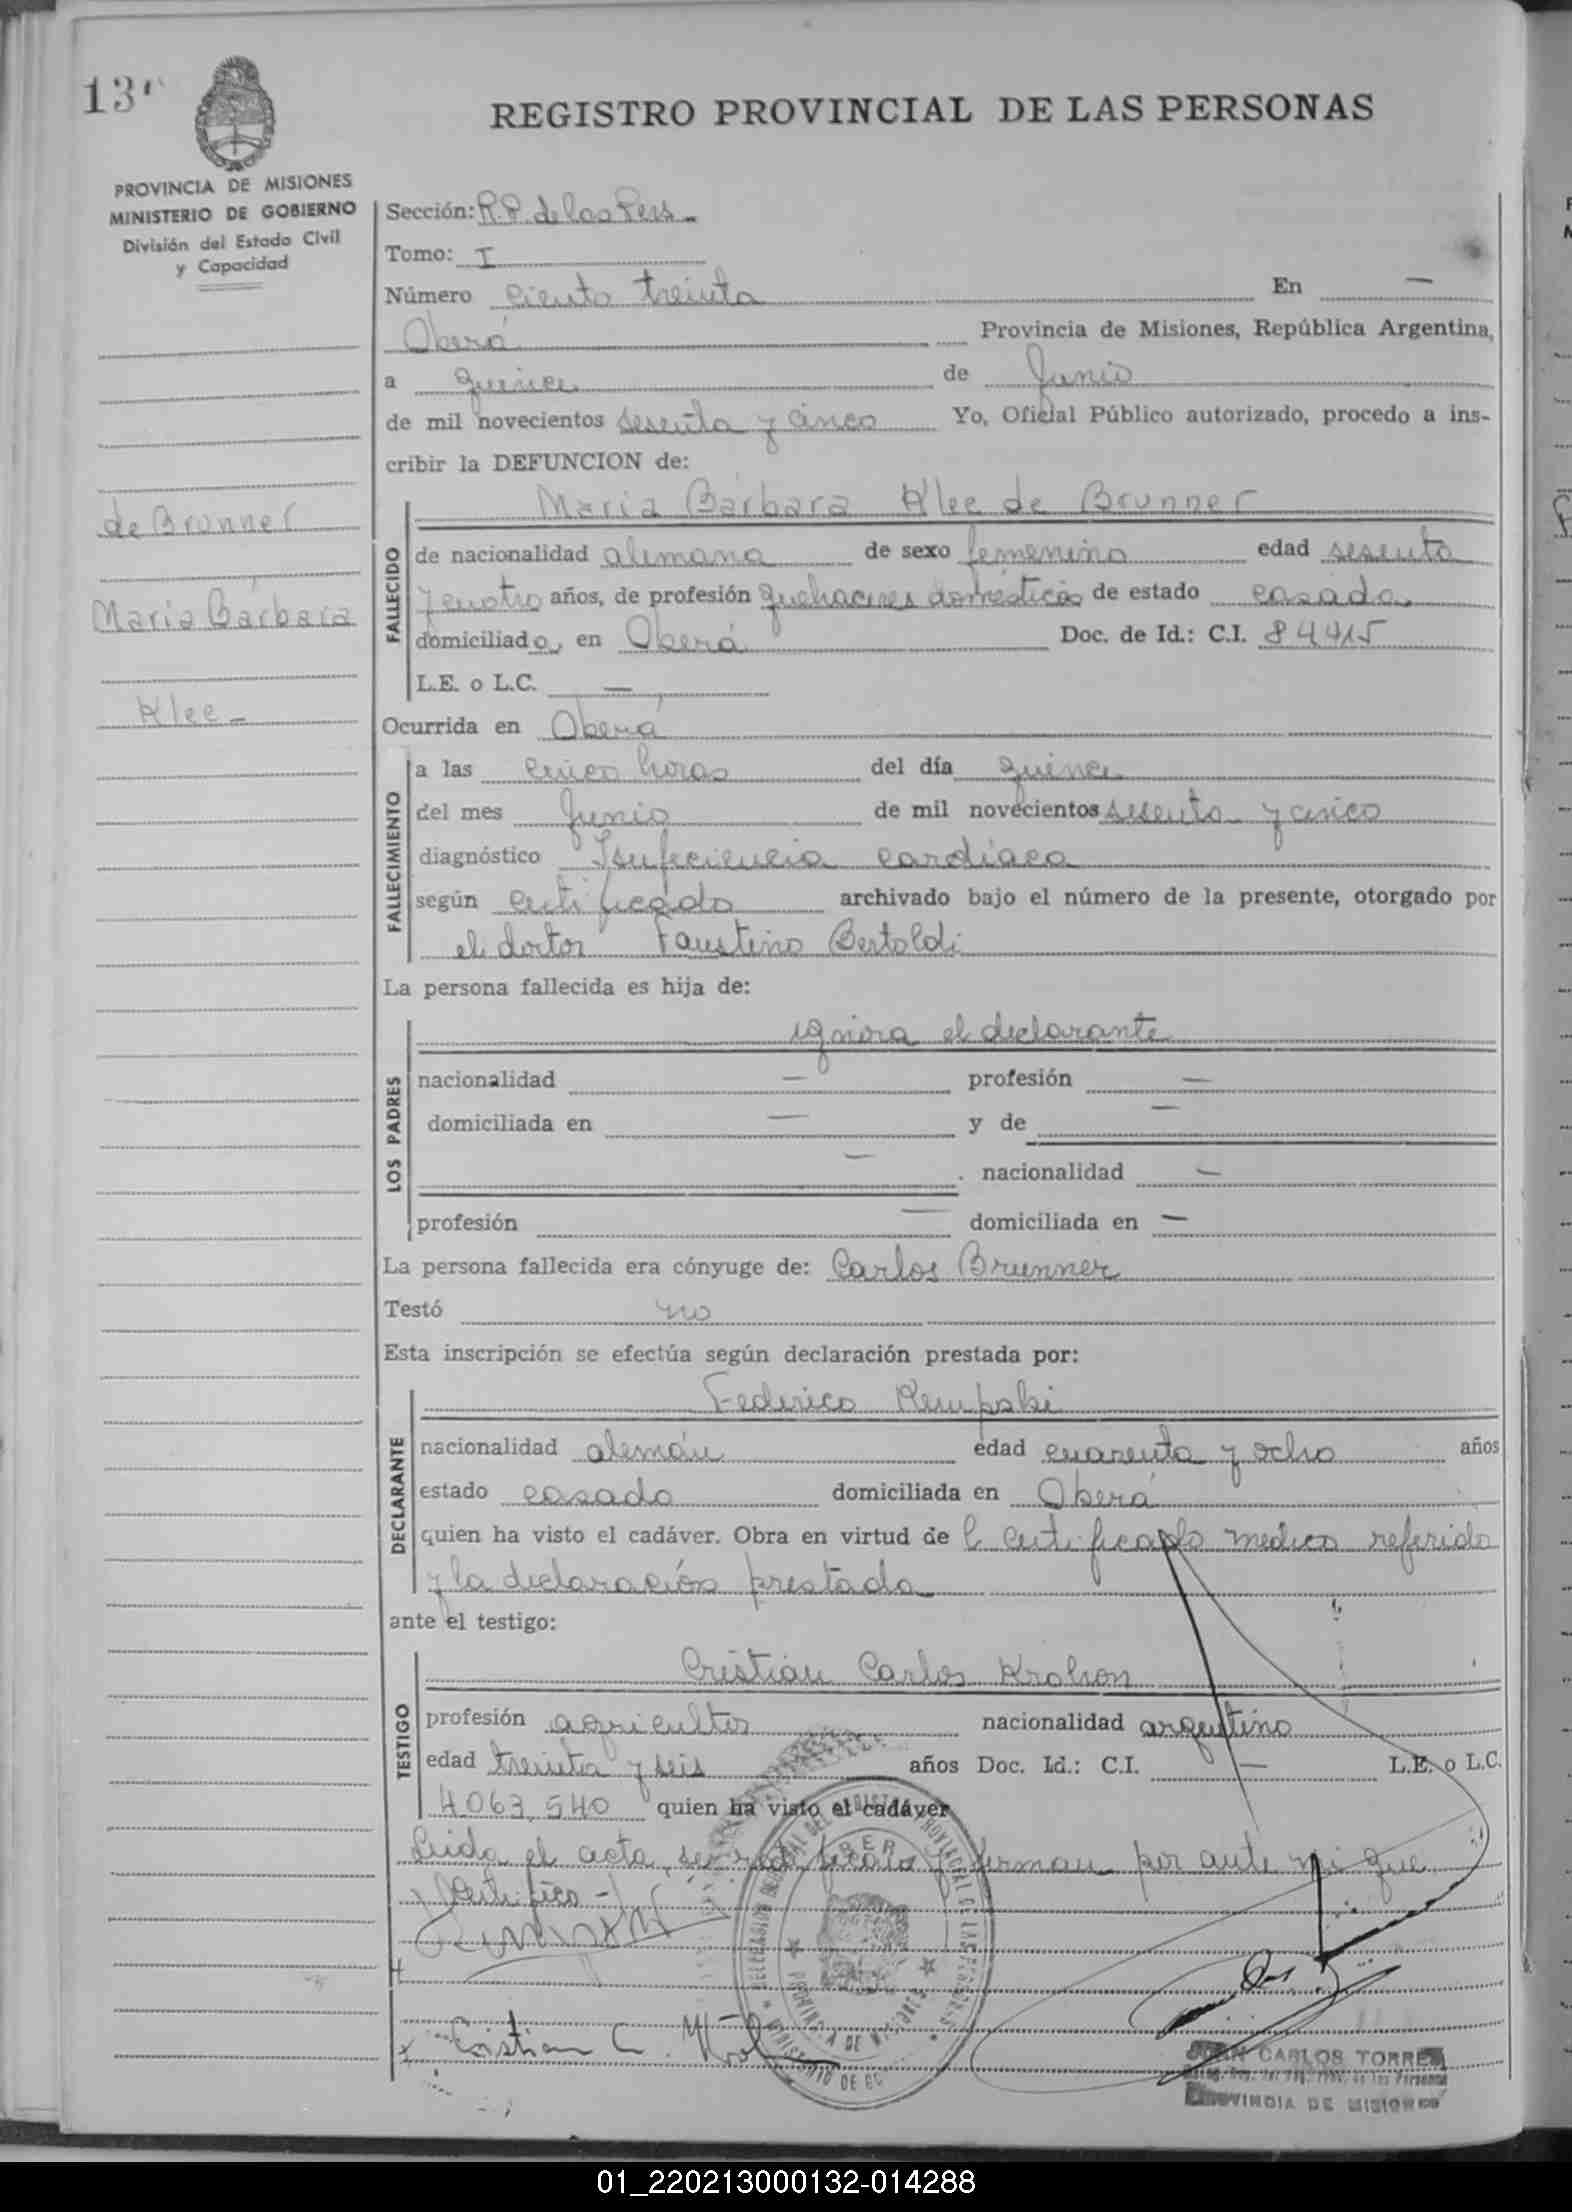 13
REGISTRO PROVINCIAL DE LAS PERSONAS
PROVINCIA DE MISIONES
MINISTERIO DE GOBIERNO
División del Estado Civil
y Capacidad
de Brunner
María Bárbara
Klee -
Sección: R.P. de las Pers.
Tomo: I
Número ciento treinta En —
Oberá Provincia de Misiones, República Argentina,
a quince de Junio
de mil novecientos sesenta y cinco Yo, Oficial Público autorizado, procedo a ins-
cribir la DEFUNCION de:
María Bárbara Klee de Brunner
FALLECIDO
de nacionalidad alemana de sexo femenino edad sesenta
y cuatro años, de profesión quehaceres domésticos de estado casada
domiciliado a, en Oberá Doc. de Id.: C.I. 84415
L.E. o L.C. —
Ocurrida en Oberá
FALLECIMIENTO
a las cinco horas del día quince
del mes Junio de mil novecientos sesenta y cinco
diagnóstico Isuficiencia cardíaca
según certificado archivado bajo el número de la presente, otorgado por
el doctor Faustino Bertoldi
La persona fallecida es hija de:
LOS PADRES
ignora el declarante
nacionalidad — profesión —
domiciliada en — y de —
— . nacionalidad —
profesión — domiciliada en —
La persona fallecida era cónyuge de: Carlos Brunner
Testó no
Esta inscripción se efectúa según declaración prestada por:
DECLARANTE
Federico Kempski
nacionalidad alemán edad cuarenta y ocho años
estado casado domiciliada en Oberá
quien ha visto el cadáver. Obra en virtud de l certificado médico referido
y la declaración prestada
ante el testigo:
TESTIGO
Cristian Carlos Krohon
profesión agricultor nacionalidad argentino
edad treinta y seis años Doc. Id.: C.I. — L.E. o L.C.
4.063.540 quien ha visto el cadáver
Leída el acta, se ratifican y firman por ante mi que
certifico -
Cristian C.
JUAN CARLOS TORRES
PROVINCIA DE MISIONES
01_220213000132-014288